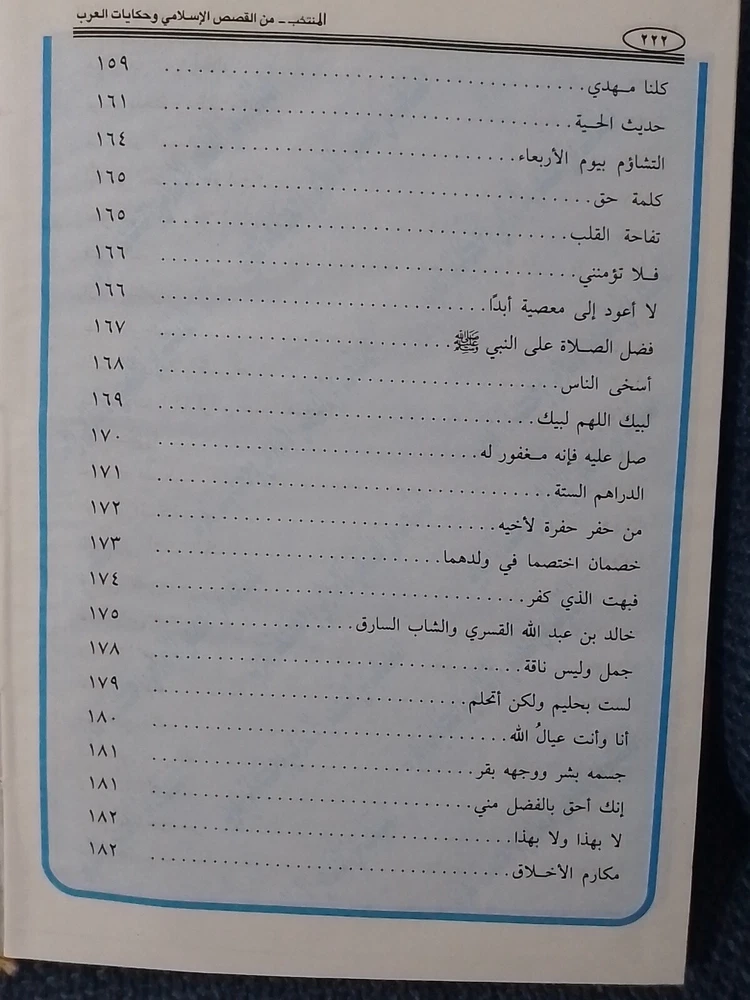 المنتخب - من القصص الإسلامي وحكايات العرب
٢٢٢
كلنا مهدي ........ ١٥٩
حديث الحية ........ ١٦١
التشاؤم بيوم الأربعاء ........ ١٦٤
كلمة حق ........ ١٦٥
تفاحة القلب ........ ١٦٥
فلا تؤمنني ........ ١٦٦
لا أعود إلى معصية أبدًا ........ ١٦٦
فضل الصلاة على النبي ﷺ ........ ١٦٧
أسخى الناس ........ ١٦٨
لبيك اللهم لبيك ........ ١٦٩
صل عليه فإنه مغفور له ........ ١٧٠
الدراهم الستة ........ ١٧١
من حفر حفرة لأخيه ........ ١٧٢
خصمان اختصما في ولدهما ........ ١٧٣
فبهت الذي كفر ........ ١٧٤
خالد بن عبد الله القسري والشاب السارق ........ ١٧٥
جمل وليس ناقة ........ ١٧٨
لست بحليم ولكن أتحلم ........ ١٧٩
أنا وأنت عيالُ الله ........ ١٨٠
جسمه بشر ووجهه بقر ........ ١٨١
إنك أحق بالفضل مني ........ ١٨١
لا بهذا ولا بهذا ........ ١٨٢
مكارم الأخلاق ........ ١٨٢